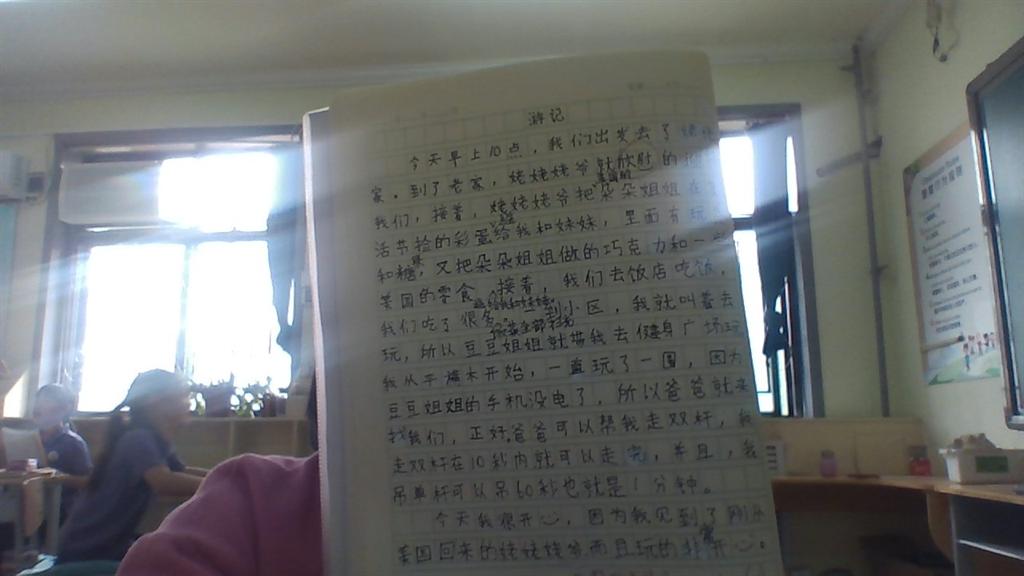 游记
今天早上10点，我们出发去了
家。到了老家，姥姥姥爷就欣慰的
我们，接着，姥姥姥爷把朵朵姐姐在
美国的
活节捡的彩蛋给我和妹妹，里面有玩
和糖，又把朵朵姐姐做的巧克力和一些
美国的零食。接着，我们去饭店吃饭，
我们吃了很多 一到小区，我就叫着去
玩，所以豆豆姐姐就带我去健身广场玩
我从平衡木开始，一直玩了一圈，因为
豆豆姐姐的手机没电了，所以爸爸就来
找我们，正好爸爸可以帮我走双杆，我
走双杆在10秒内就可以走完，并且，我
吊单杆可以吊60秒也就是1分钟。
今天我很开，因为我见到了刚从
美国回来的姥姥姥爷而且玩的非常开。